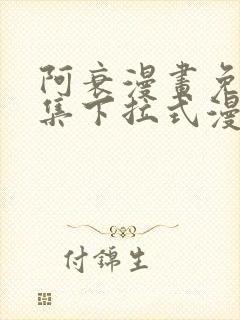 阿衰漫畫免
集下拉式漫
付錦生